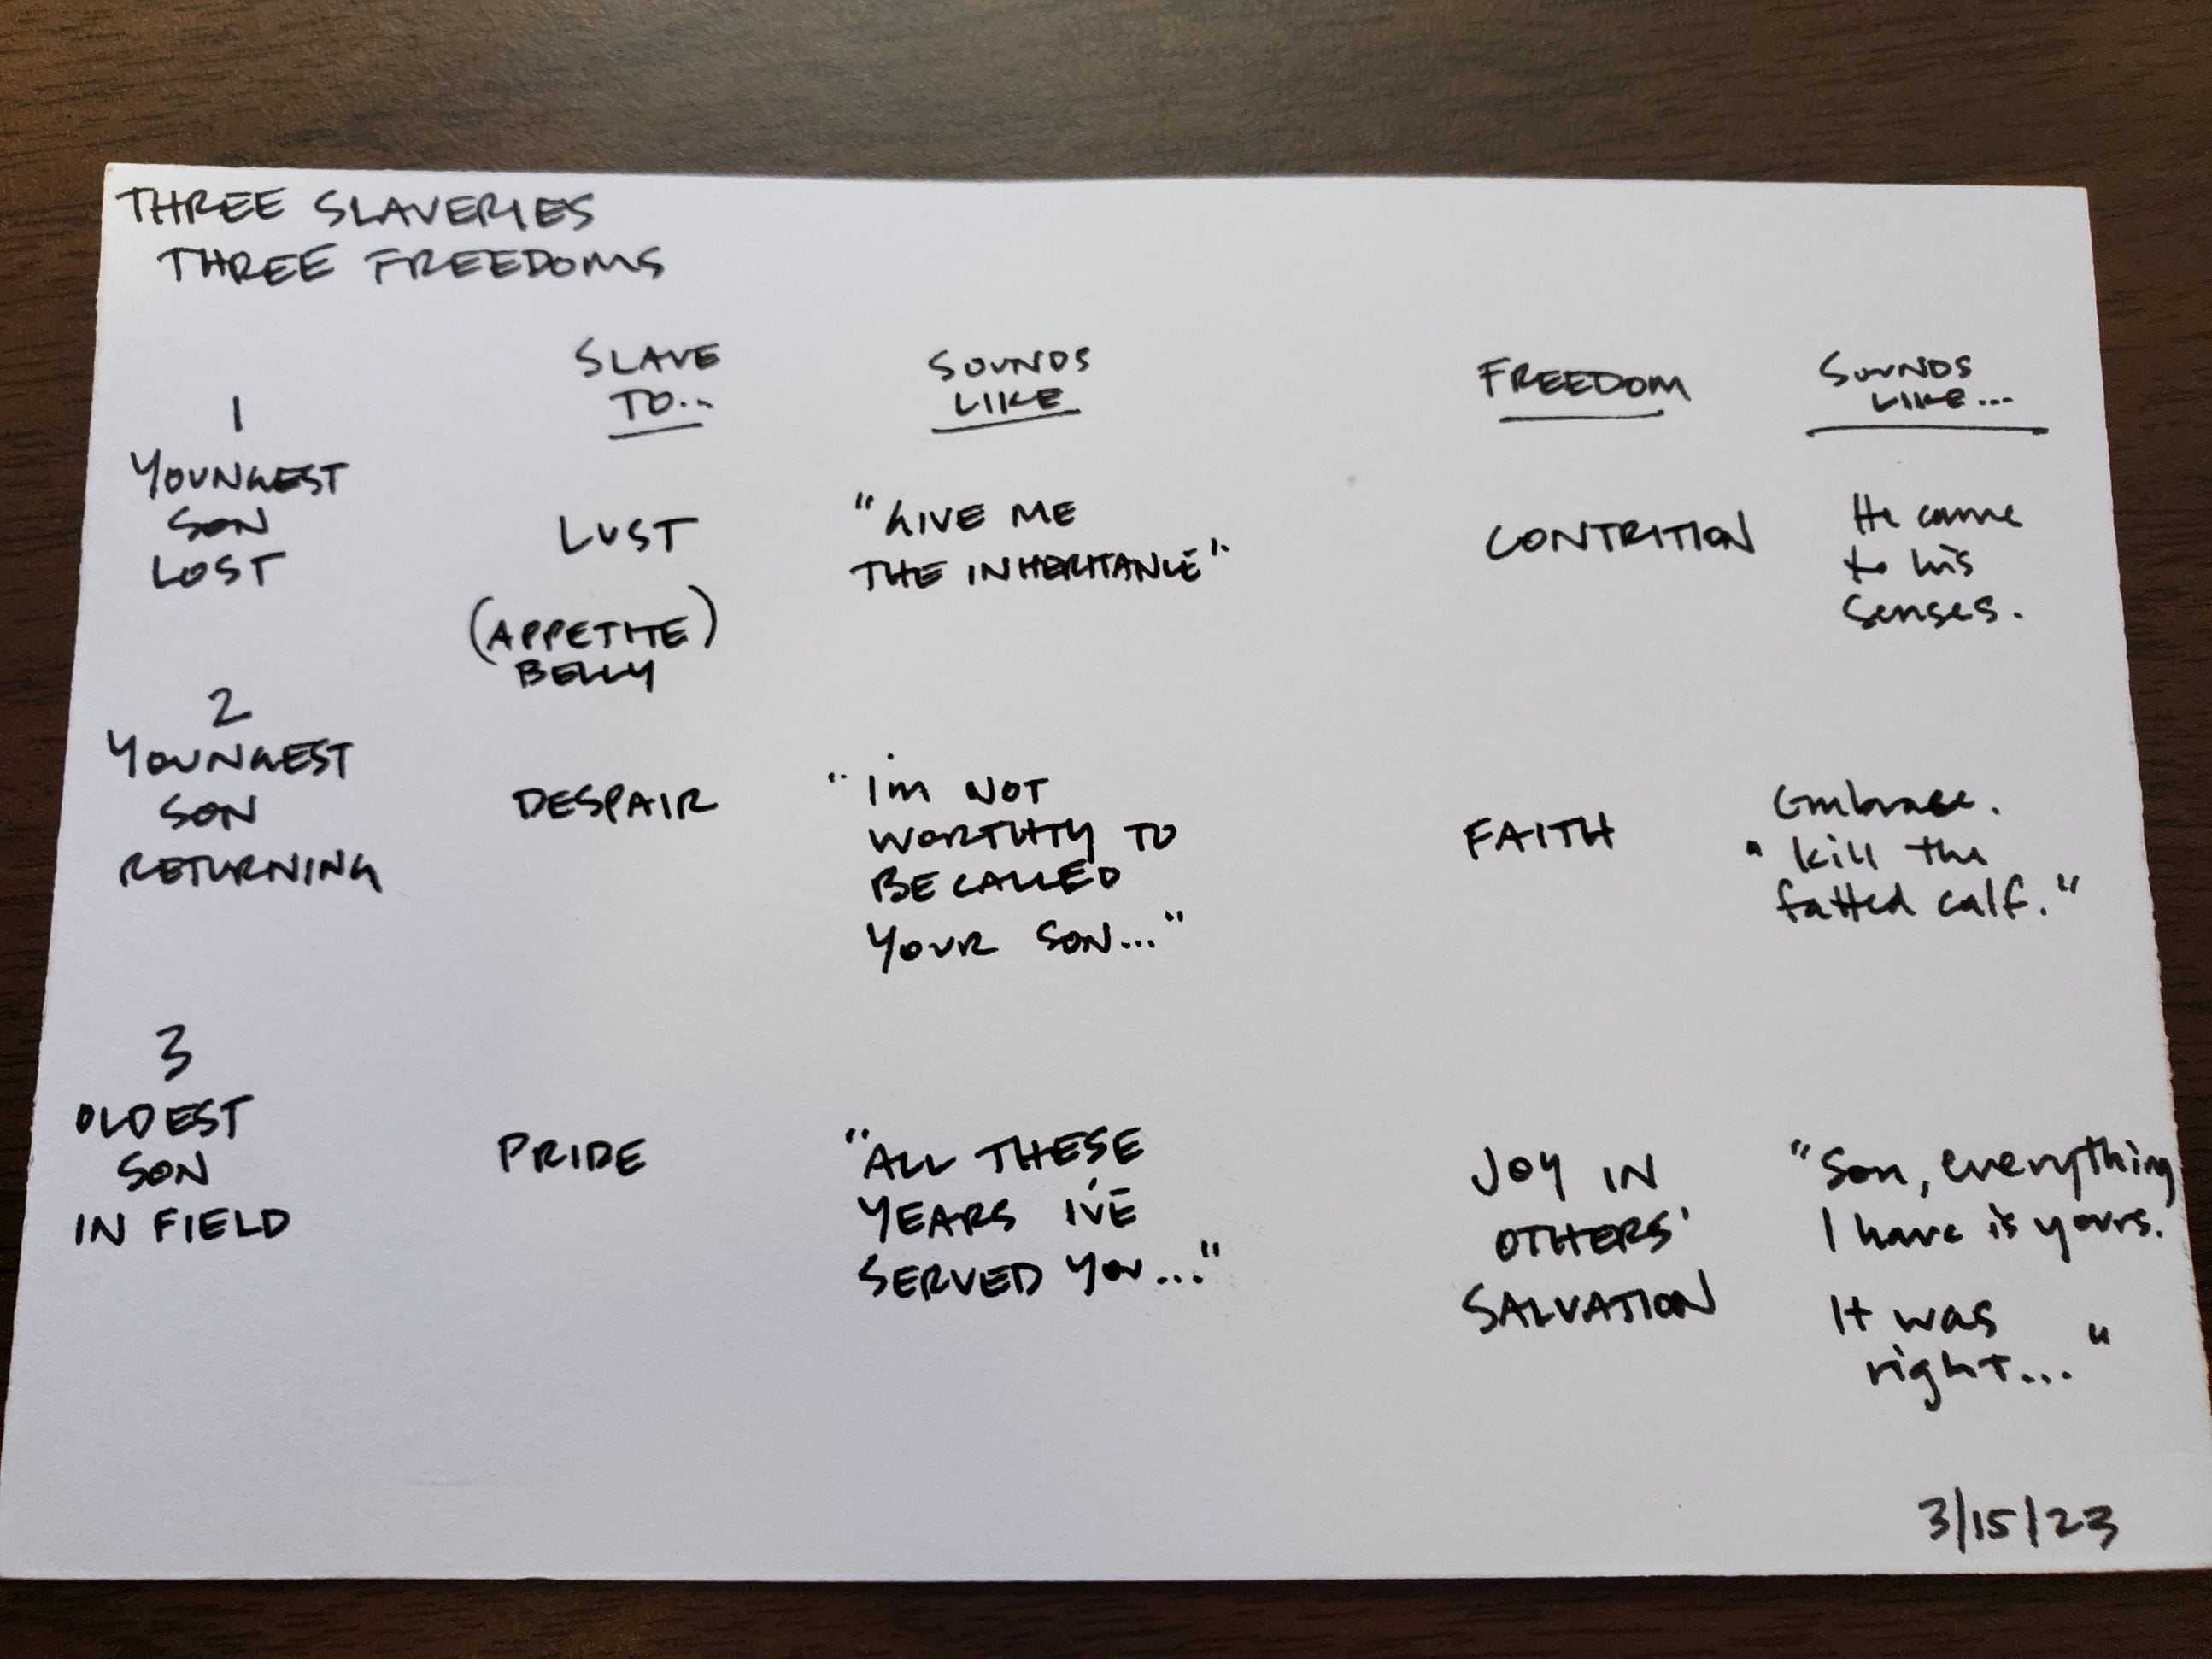 THREE SLAVERIES
THREE FREEDOMS
SLAVE
TO...
SOUNDS
LIKE
FREEDOM
SOUNDS
LIKE...
1
YOUNGEST
SON
LOST
LUST
(APPETITE)
BELLY
"GIVE ME
THE INHERITANCE"
CONTRITION
He came
to his
senses.
2
YOUNGEST
SON
RETURNING
DESPAIR
"I'm NOT
WORTHTY TO
BE CALLED
YOUR SON..."
FAITH
Embrace.
"kill the
fatted calf."
3
OLDEST
SON
IN FIELD
PRIDE
"ALL THESE
YEARS I'VE
SERVED YOU..."
JOY IN
OTHERS'
SALVATION
"Son, everything
I have is yours.
It was
right..."
3/15/23